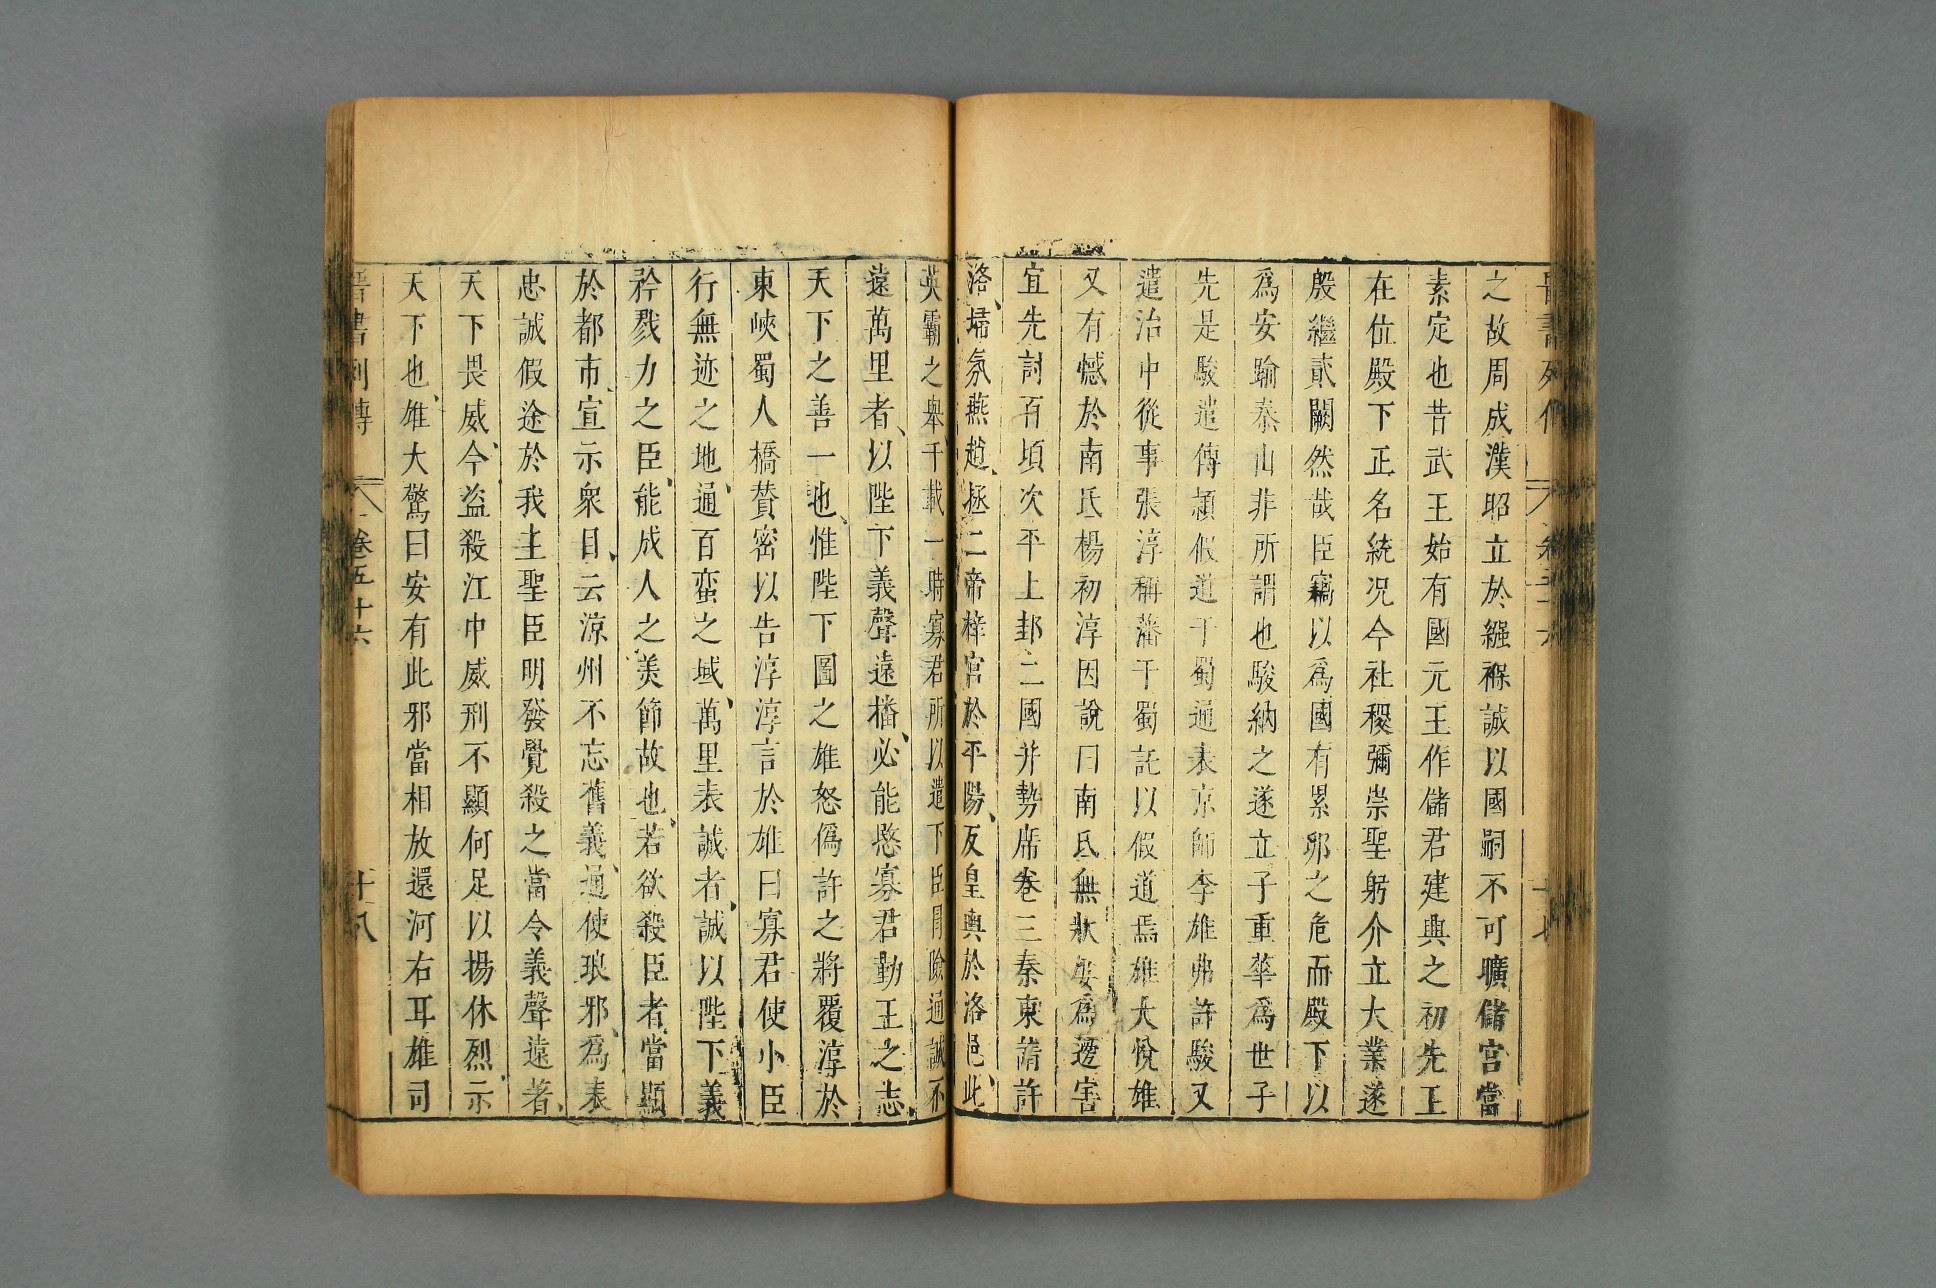 晉書列傳
卷五十六
十七
之故周成漢昭立於繈褓誠以國嗣不可曠儲宮當
素定也昔武王始有國元王作儲君建興之初先王
在位殿下正名統况今社稷彌崇聖躬介立大業遂
殷繼貳闕然哉臣竊以爲國有累卵之危而殿下以
爲安踰泰山非所謂也駿納之遂立子重華爲世子
先是駿遣傅穎假道于蜀通表京師李雄弗許駿又
遣治中從事張淳稱藩于蜀託以假道焉雄大悅雄
又有憾於南氐楊初淳因說曰南氐無狀屢爲邊害
宜先討百頃次平上邽二國并勢席卷三秦東清許
洛掃氛燕趙拯二帝梓宮於平陽反皇輿於洛邑此
英霸之舉千載一時寡君所以遣下臣冐險通誠不
遠萬里者以陛下義聲遠播必能愍寡君勤王之志
天下之善一也惟陛下圖之雄怒僞許之將覆淳於
東峽蜀人橋贊密以告淳淳言於雄曰寡君使小臣
行無迹之地通百蠻之域萬里表誠者誠以陛下義
矜戮力之臣能成人之美節故也若欲殺臣者當顯
於都市宣示衆目云涼州不忘舊義通使琅邪爲表
忠誠假途於我主聖臣明發覺殺之當令義聲遠著
天下畏威今盜殺江中威刑不顯何足以揚休烈示
天下也雄大驚曰安有此邪當相放還河右耳雄司
晉書列傳
卷五十六
十八